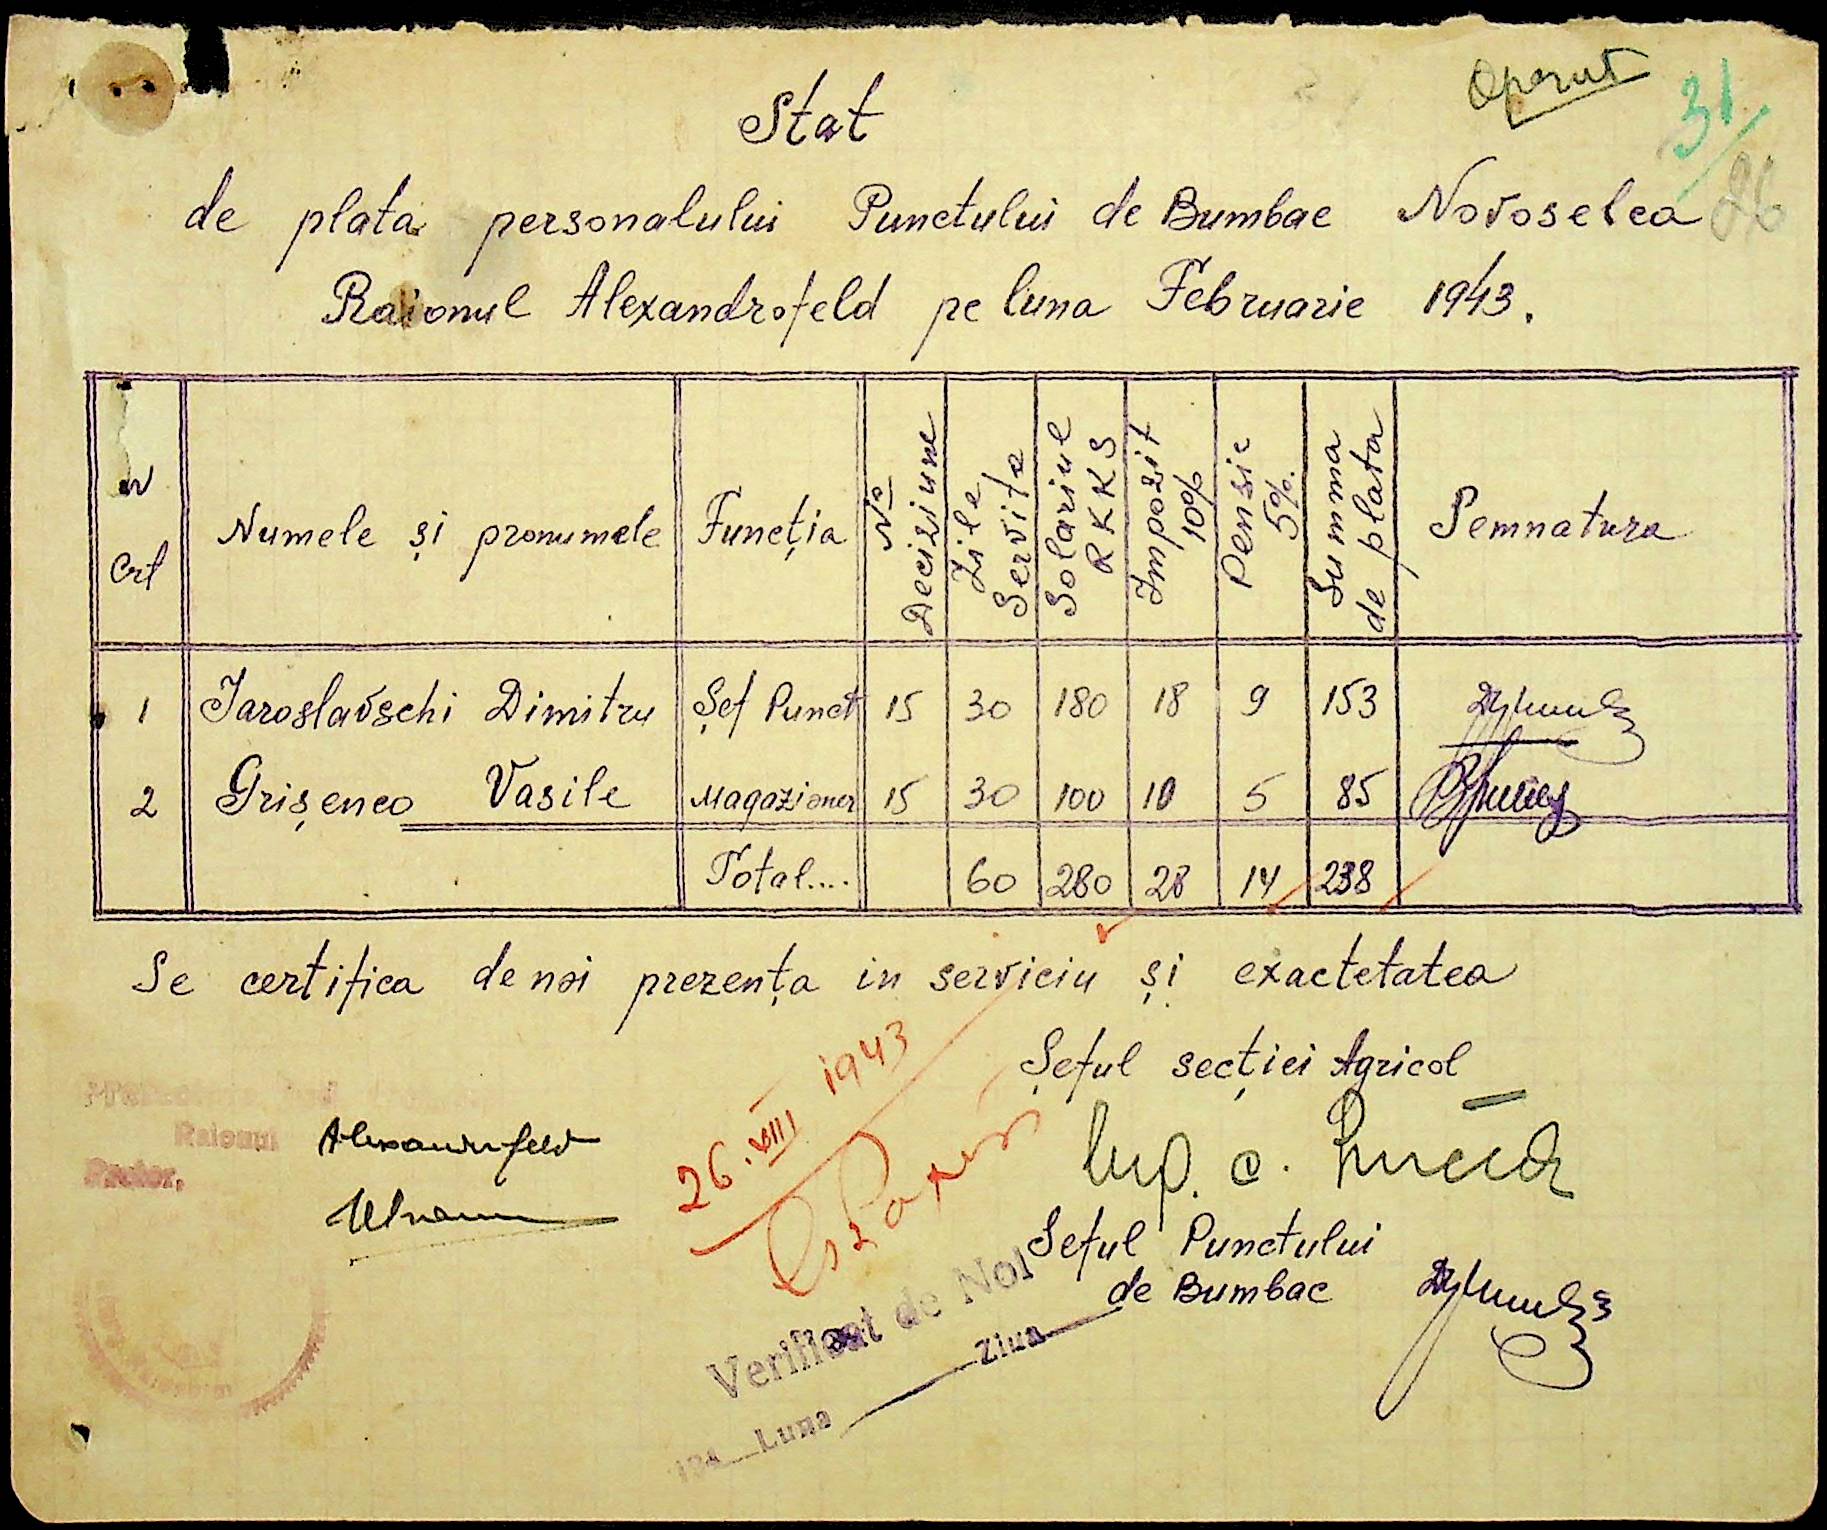 Operat
31
26
Stat
de plata personalului Punctului de Bumbac Novoselca
Raionul Alexandrofeld pe luna Februarie 1943.
N Crt Numele și pronumele Funcția No Deciziune Zile Servite Solariul RKKS Impozit 10% Pensie 5%. Summa de plata Semnatura
1 Iaroslavschi Dimitru Șef Punct 15 30 180 18 9 153
2 Grișenco Vasile Magazioner 15 30 100 10 5 85
Total.... 60 280 28 14 238
Se certifica de noi prezența in serviciu și exactetatea
26.VIII 1943
Șeful secției Agricol
Raionul Alexandrfeld
Pretor,
Șeful Punctului
de Bumbac
Verificat de Noi
194 Luna Ziua